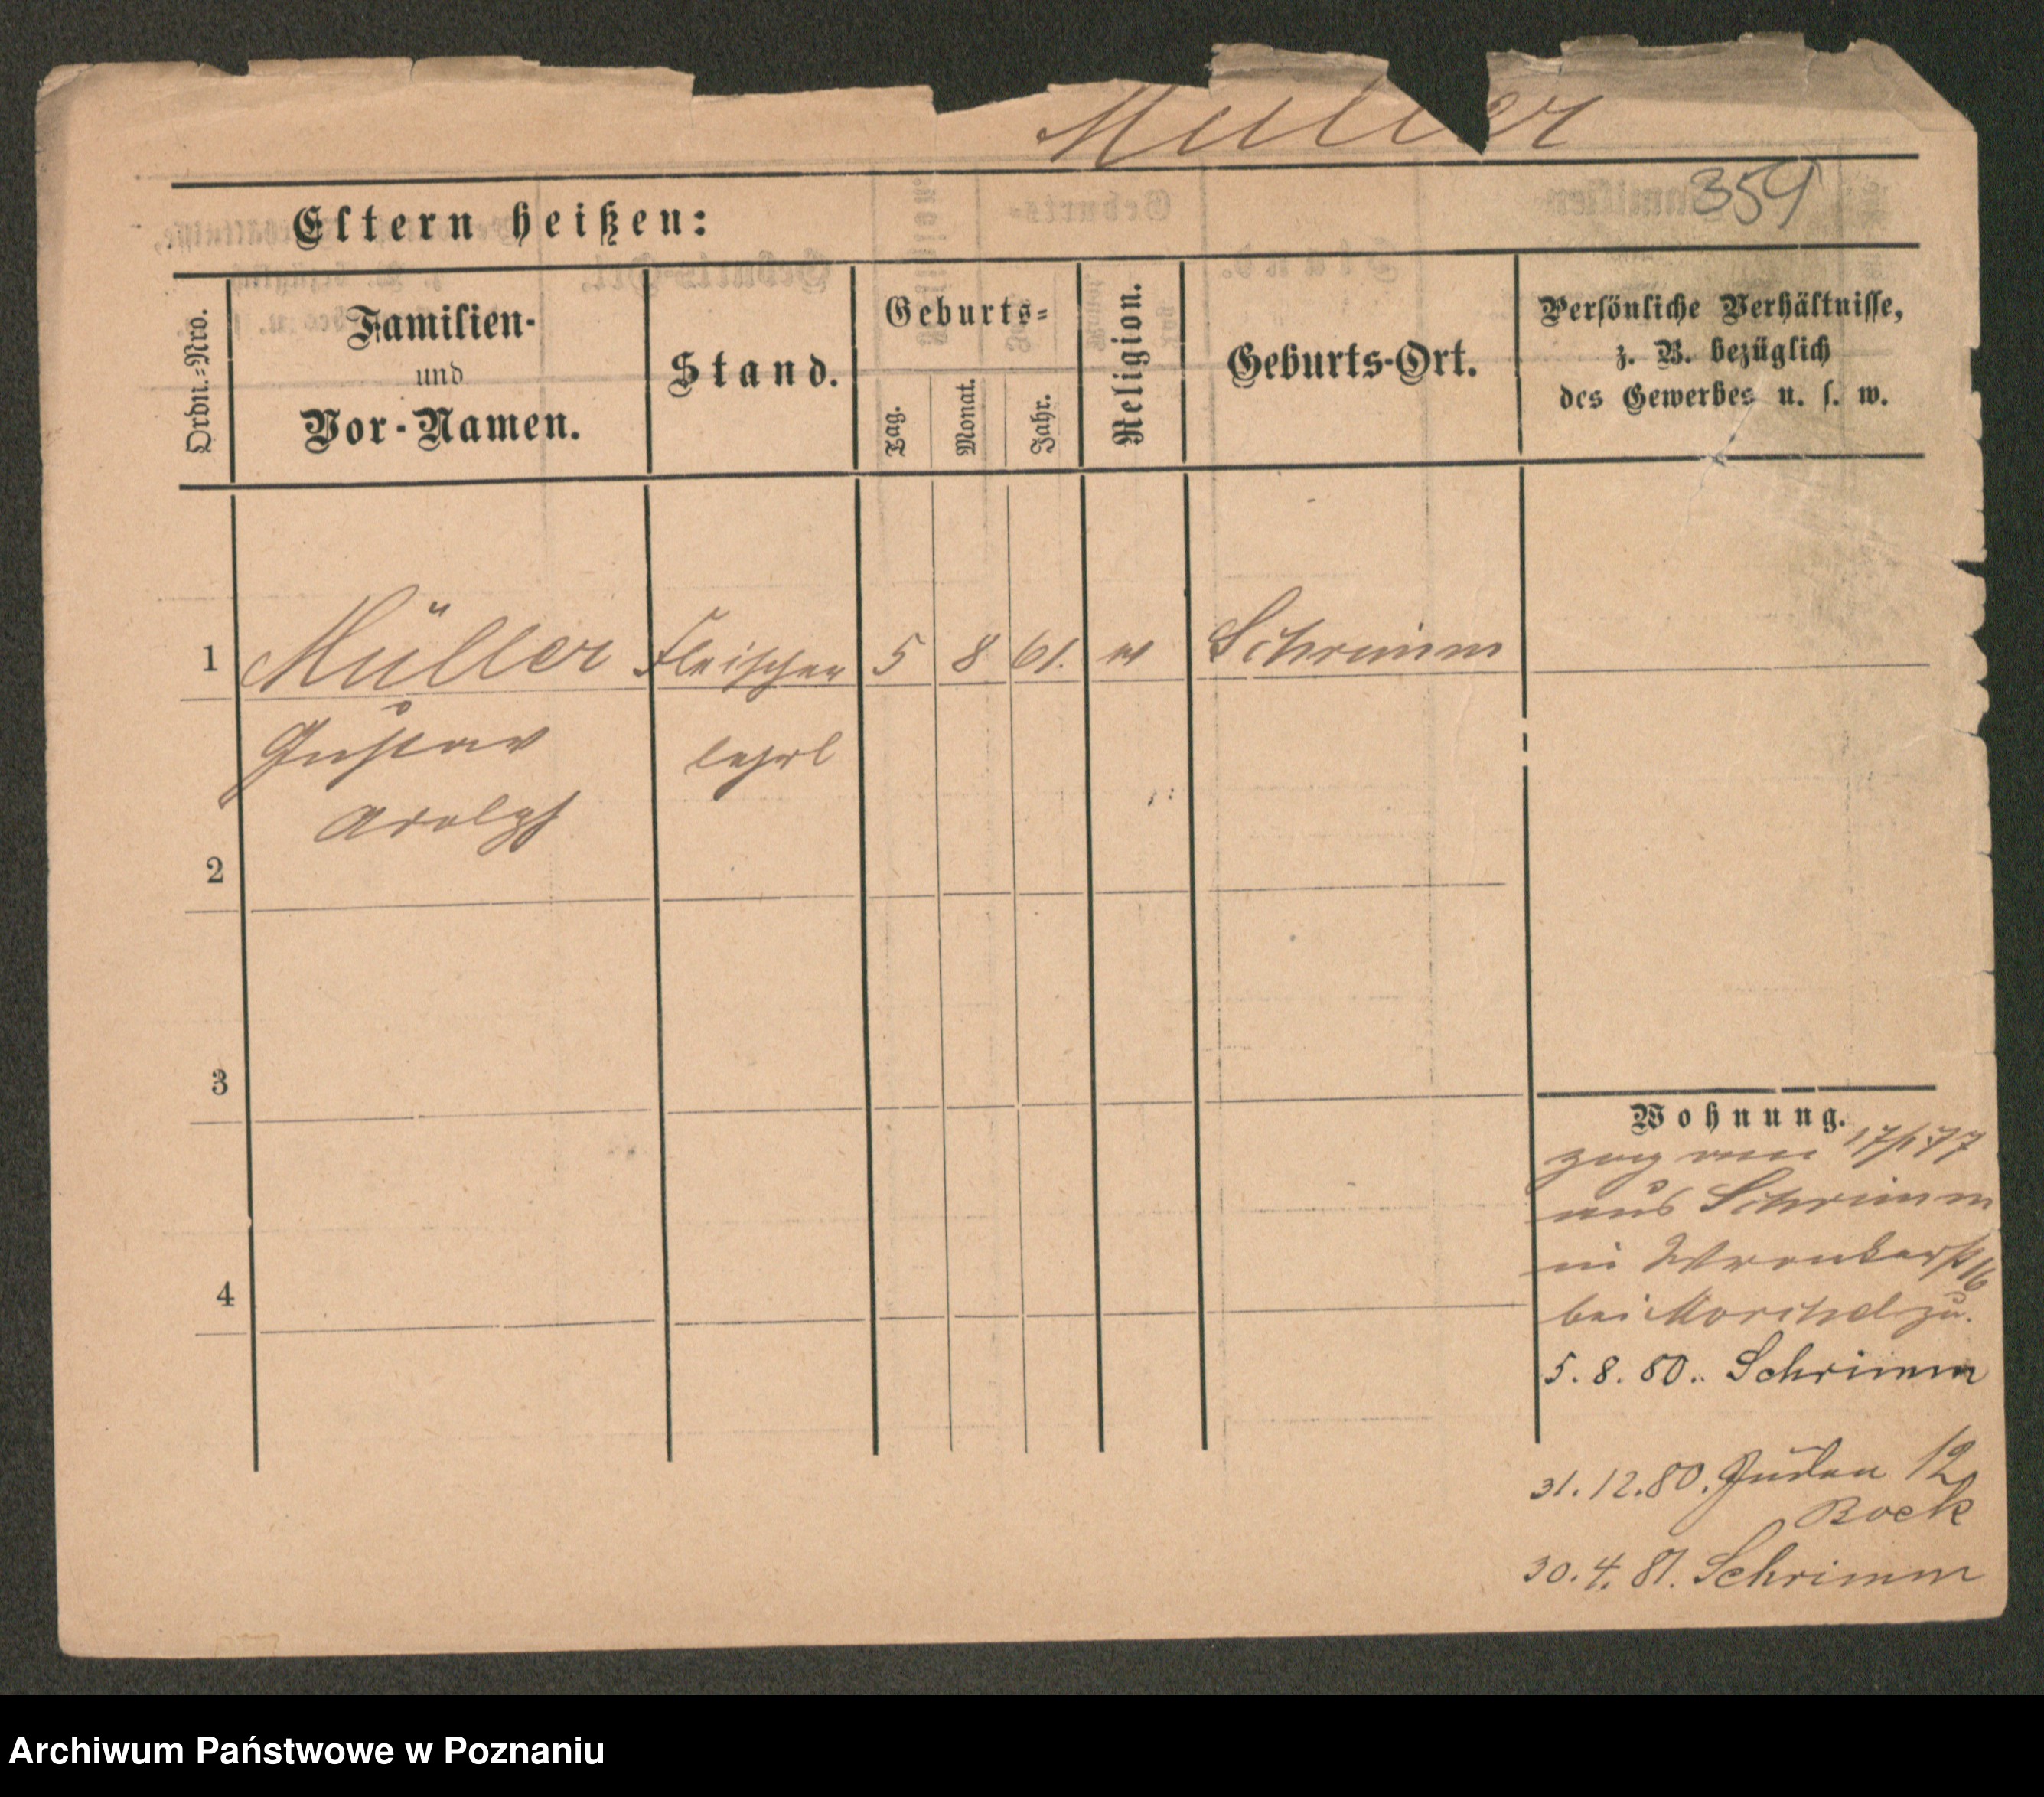 Müller
359
Eltern heißen:
Ordn.-Nro.
Familien-
und
Vor-Namen.
Stand.
Geburts-
Tag.
Monat.
Jahr.
Religion.
Geburts-Ort.
Persönliche Verhältnisse,
z. B. bezüglich
des Gewerbes u. s. w.
1 Müller Fleischer 5 8 61. Schrimm
Gustav lehrl
Adolph
2
3
4
Wohnung.
zog am 17/1 77
aus Schrimm
in Wronkerst 16
bei zu.
5. 8. 80. Schrimm
31. 12. 80. Juden 12
Bock
30. 4. 81. Schrimm
Archiwum Państwowe w Poznaniu